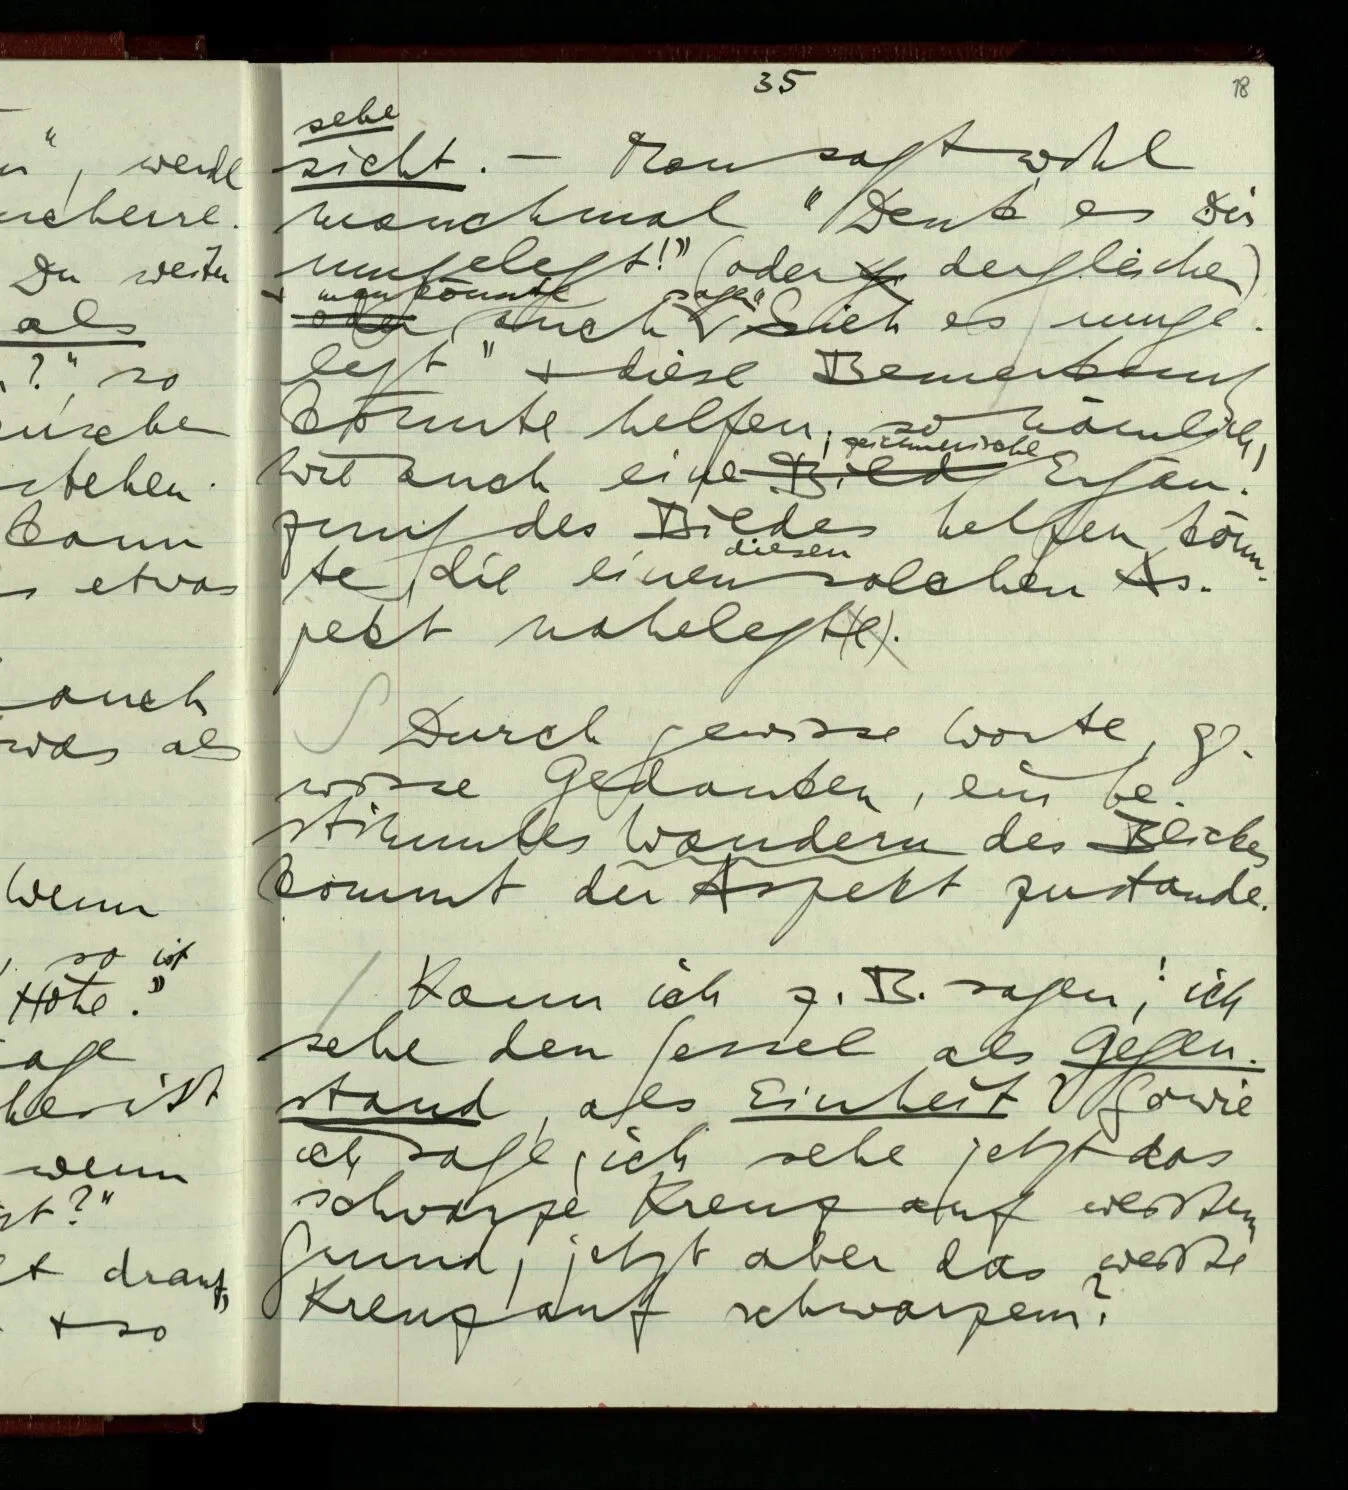 35
18
sehe
sicht. — Man sagt wohl
manchmal "Denk' es Dir
umgelegt!" (oder dergleichen)
+ man könnte sagen
oder auch "Sieh es umge-
legt" + diese Bemerkung
könnte helfen, so nämlich,
zeichnerische
wie auch eine Bild Ergän-
zung des Bildes helfen könn-
diesen
te, die einen solchen As-
pekt nahelegt(e).
Durch gewisse Worte, ge-
wisse Gedanken, ein be-
stimmtes Wandern des Blickes
kommt der Aspekt zustande.
Kann ich z.B. sagen, ich
sehe den Sessel als Gegen-
stand, als Einheit? Sowie
ich sage, ich sehe jetzt das
schwarze Kreuz auf weißem
Grund, jetzt aber das weiße
Kreuz auf schwarzem?
", werde
Du weiter
als
?", so
stehen.
kann
etwas
auch
als
Wenn
, so ist
Höhe."
wenn
?"
drauf,
+ so